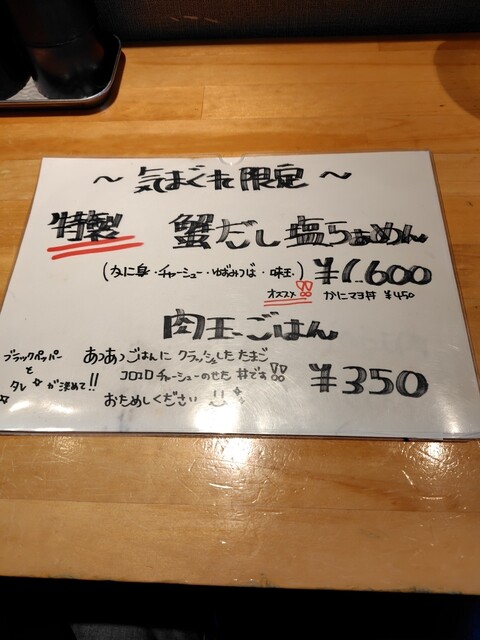 〜 気まぐれ限定 〜
特製 蟹だし塩らぁめん
(かに身・チャーシュー・ゆずみつば・味玉) ¥1,600
オススメ!! かにマヨ丼 ¥450
肉玉ごはん
あつあつごはんにクラッシュしたたまご
コロコロチャーシューのせた丼です!! ¥350
おためしください!!
ブラックペッパー
と
タレが決めて!!